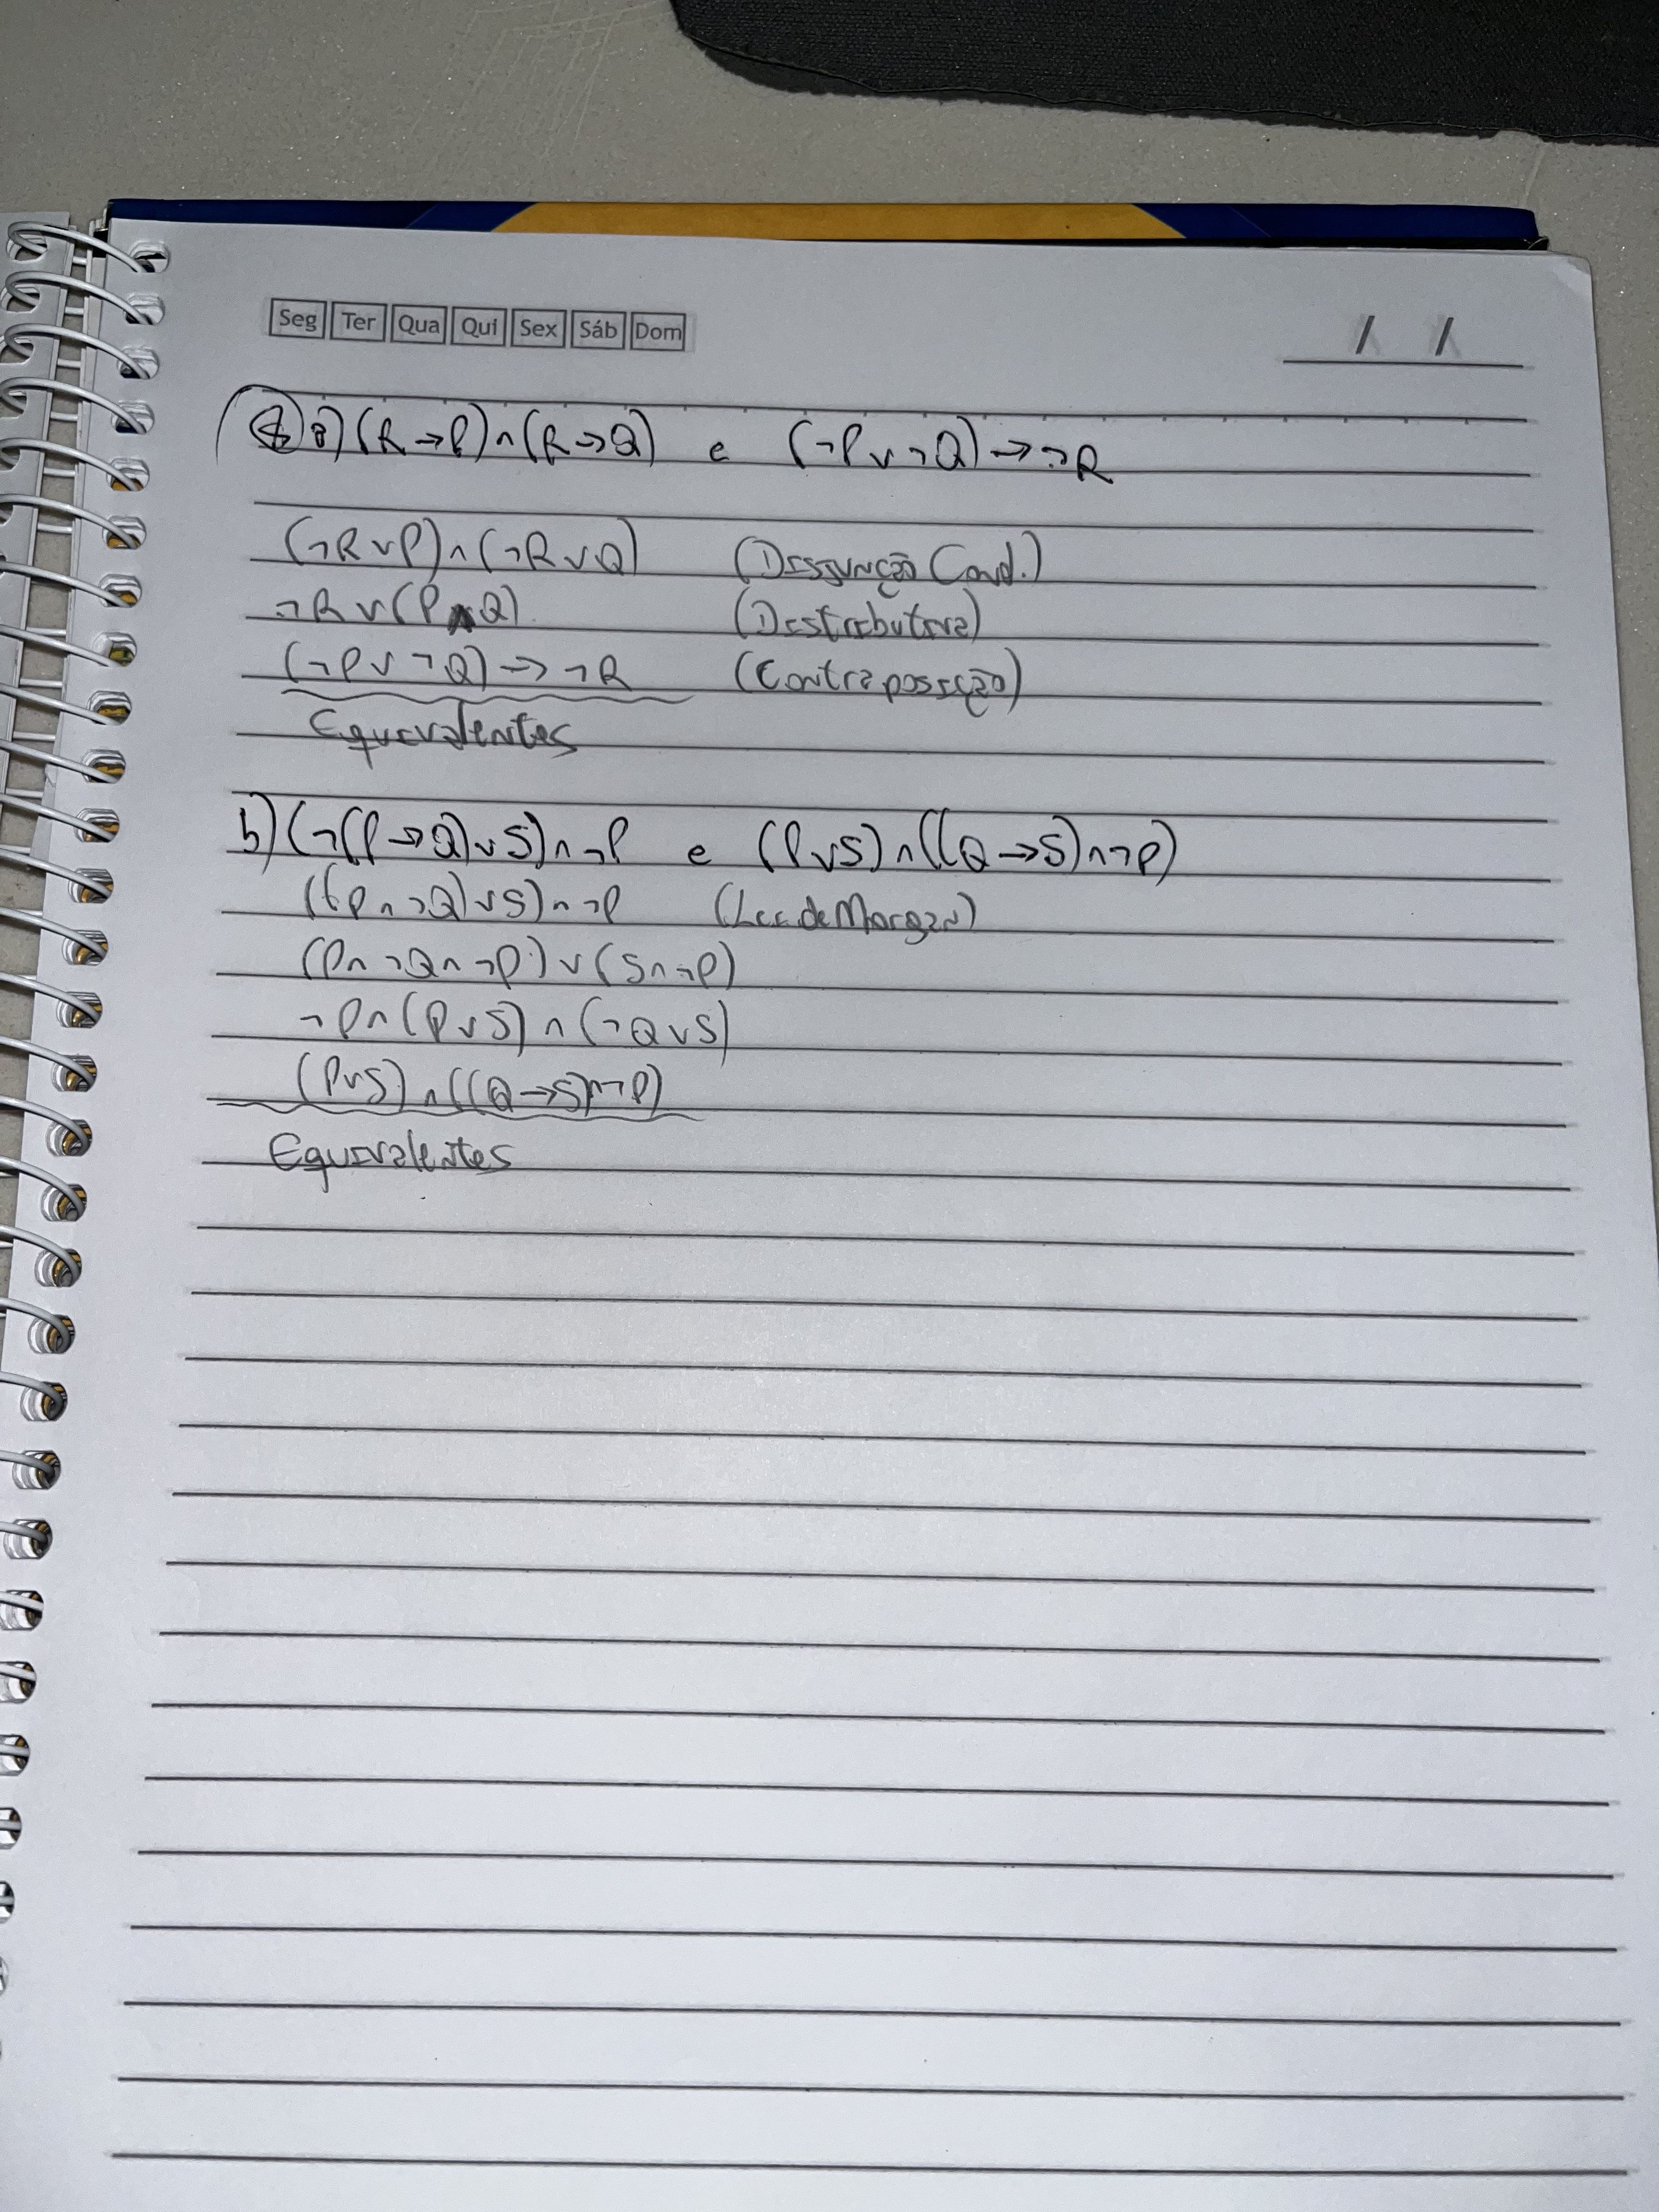 Seg Ter Qua Qui Sex Sáb Dom / /
a) (R→P)∧(R→Q) e (¬P∨¬Q)→¬R
(¬R∨P)∧(¬R∨Q) (Disjunção Cond.)
¬R∨(P∧Q) (Distributiva)
(¬P∨¬Q)→¬R (Contraposição)
Equivalentes
b) (¬(P→Q)∨S)∧¬P e (P∨S)∧((Q→S)∧¬P)
((P∧¬Q)∨S)∧¬P (Lei de Morgan)
(P∧¬Q∧¬P)∨(S∧¬P)
¬P∧(P∨S)∧(¬Q∨S)
(P∨S)∧((Q→S)∧¬P)
Equivalentes